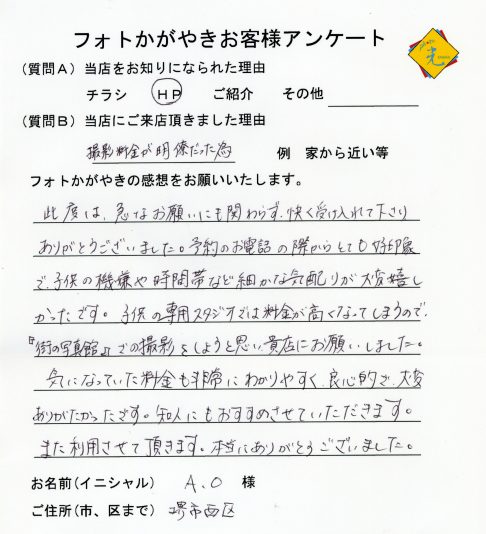 フォトかがやきお客様アンケート
光
(質問A) 当店をお知りになられた理由
チラシ HP ご紹介 その他
(質問B) 当店にご来店頂きました理由
撮影料金が明僚だった為 例 家から近い等
フォトかがやきの感想をお願いいたします。
此度は、急なお願いにも関わらず、快く受け入れて下さり
ありがとうございました。予約のお電話の際からとても好印象
で、子供の機嫌や時間帯など細かな気配りが大変嬉し
かったです。子供の専用スタジオでは料金が高くなってしまうので、
『街の写真館』での撮影をしようと思い貴店にお願いしました。
気になっていた料金も非常にわかりやすく、良心的で、大変
ありがたかったです。知人にもおすすめさせていただきます。
また利用させて頂きます。本当にありがとうございました。
お名前(イニシャル) A.O 様
ご住所(市、区まで) 堺市西区